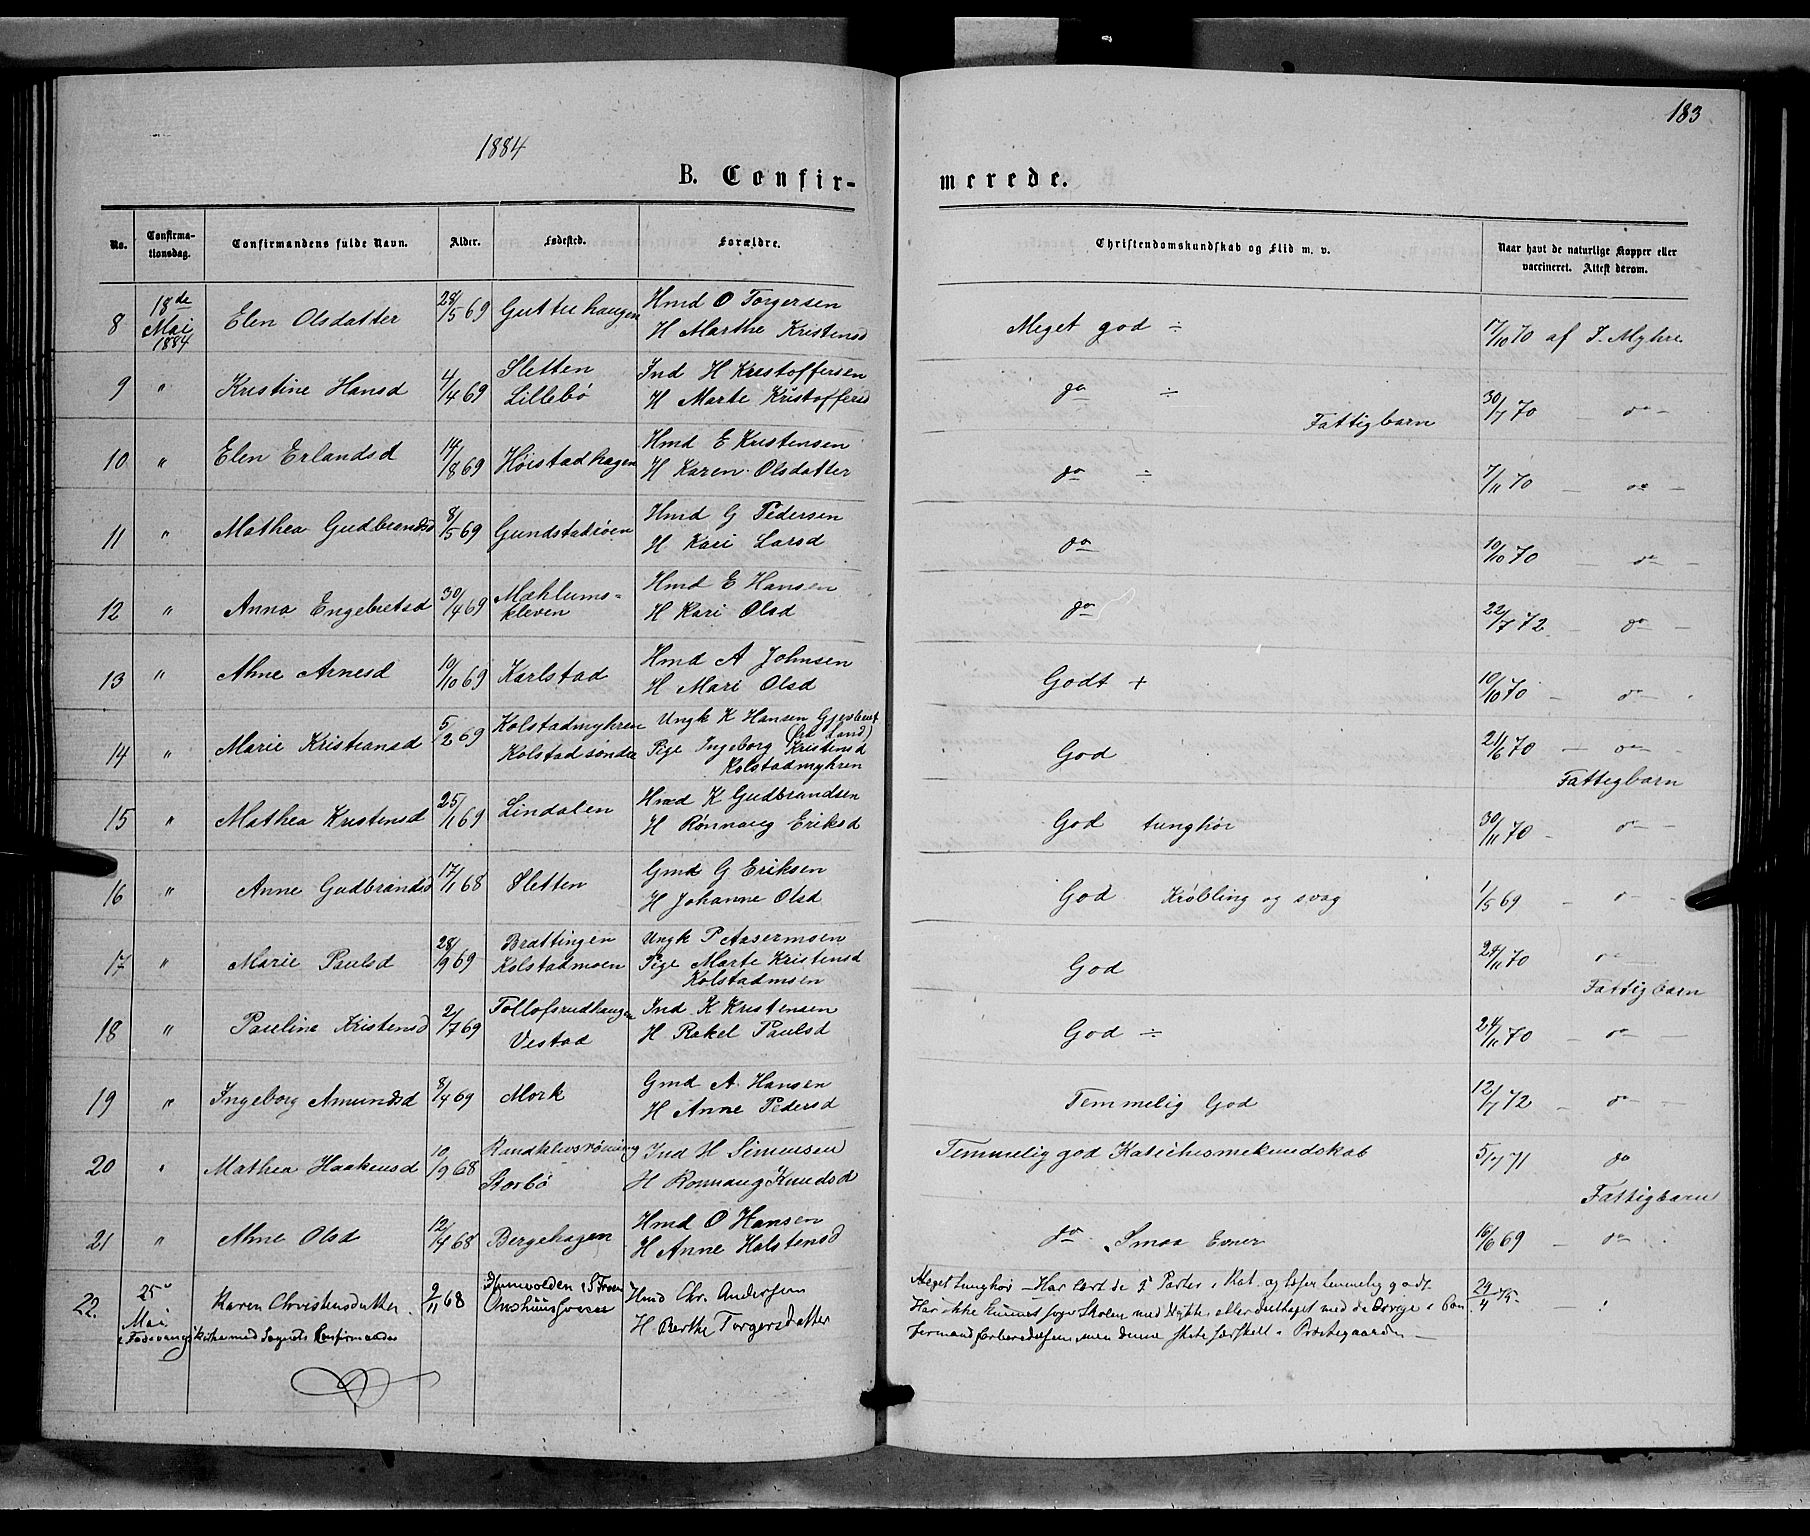 183
1884
B. Confir-
merede.
No.
Confirma-
tionsdag.
Confirmandens fulde Navn.
Alder.
Fødested.
Forældre.
Christendomskundskab og Flid m. v.
Naar havt de naturlige Kopper eller
vaccineret. Attest derom.
8 18de Mai 1884 Elen Olsdatter 28/5 69 Guttuhaugen Hmd O Torgersen
H Marthe Kristensd
Meget god ÷ 17/10 70 af J. Myhre
9 " Kristine Hansd 4/4 69 Sletten
Lillebø
Ind H Kristoffersen
H Marte Kristoffersd
do ÷ 30/7 70 – do –
Fattigbarn
10 " Elen Erlandsd 14/8 69 Høistadhagen Hmd E Kristensen
H Karen Olsdatter
do ÷ 7/11 70 – do –
11 " Mathea Gudbrandsd 8/5 69 Gundstadøen Hmd G Pedersen
H Kari Larsd
do 10/10 70 – do –
12 " Anna Engebretsd 30/4 69 Mæhlums-
kleven
Hmd E Hansen
H Kari Olsd
do 22/7 72 – do –
13 " Anne Arnesd 10/10 69 Karlstad Hmd A Johnsen
H Mari Olsd
Godt + 10/10 70 – do –
14 " Marie Kristiansd 5/2 69 Kolstadmyhren
Kolstad søndre
Ungk K Hansen
(fra Land)
Pige Ingeborg Kristensd
Kolstadmyhren
God 21/6 70 – do –
Fattigbarn
15 " Mathea Kristensd 25/1 69 Lindalen Hmd K Gudbrandsen
H Rønnaug Eriksd
God tunghør 30/11 70 – do –
16 " Anne Gudbrandsd 17/1 68 Sletten Gmd G Eriksen
H Johanne Olsd
God Krøbling og svag 1/5 69 – do –
17 " Marie Paulsd 28/9 69 Brættingen
Kolstadmoen
Ungk P Aasermoen
Pige Marte Kristensd
Kolstadmoen
God 24/11 70 do
Fattigbarn
18 " Pauline Kristensd 2/7 69 Tollofsrudhaugen
Vestad
Ind K Kristensen
H Rakel Paulsd
God ÷ 24/11 70 – do –
19 " Ingeborg Amundsd 8/4 69 Mork Gmd A. Hansen
H Anne Pedersd
Temmelig God 12/7 72 – do –
20 " Mathea Haakensd 10/9 68 Storbø
Ind H Simensen
H Rønnaug Knudsd
Temmelig god Katechesmekundskab 5/7 71 do
Fattigbarn
21 " Anne Olsd 12/4 68 Bergehagen Hmd O Hansen
H Anne Holstensd
do Smaa Evner 16/6 69 – do –
22. 25de Mai Karen Christensdatter. 2/11 68 Hmd Chr. Andersen
H. Berthe Torgersdatter
i Fodvangs Kirke med Sognets Confirmander
Meget tunghør – Har lært de 2 Parter i Kat. og læser temmelig godt.
Har ikke kunnet søge Skolen med Nytte, eller deeltaget med de Øvrige i Con
firmandforberedelsen, men denne skete særskilt i Præstegaarden – 29/4 75